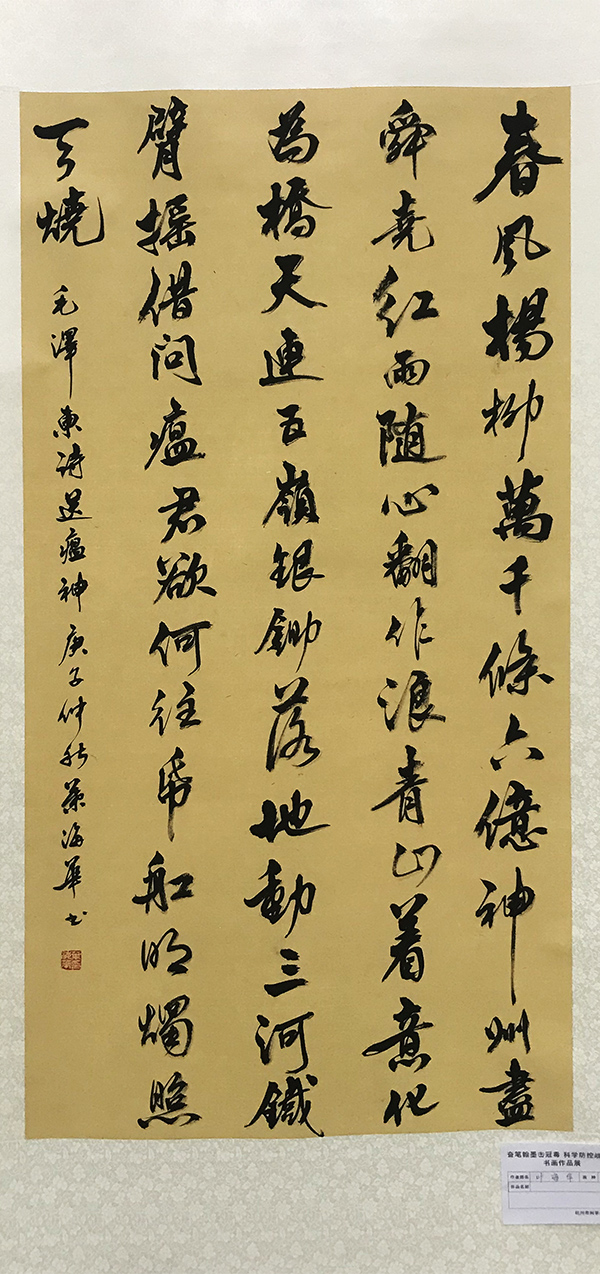 春風楊柳萬千條六億神州盡
舜堯紅雨随心翻作浪青山着意化
為橋天連五嶺銀鋤落地動三河鐵
臂摇借问瘟君欲何往帋船明燭照
天燒
毛澤東詩送瘟神庚子仲秋葉海華书
奋笔翰墨击冠毒 科学防控
书画作品展
作者姓名 叶海华
作品名称